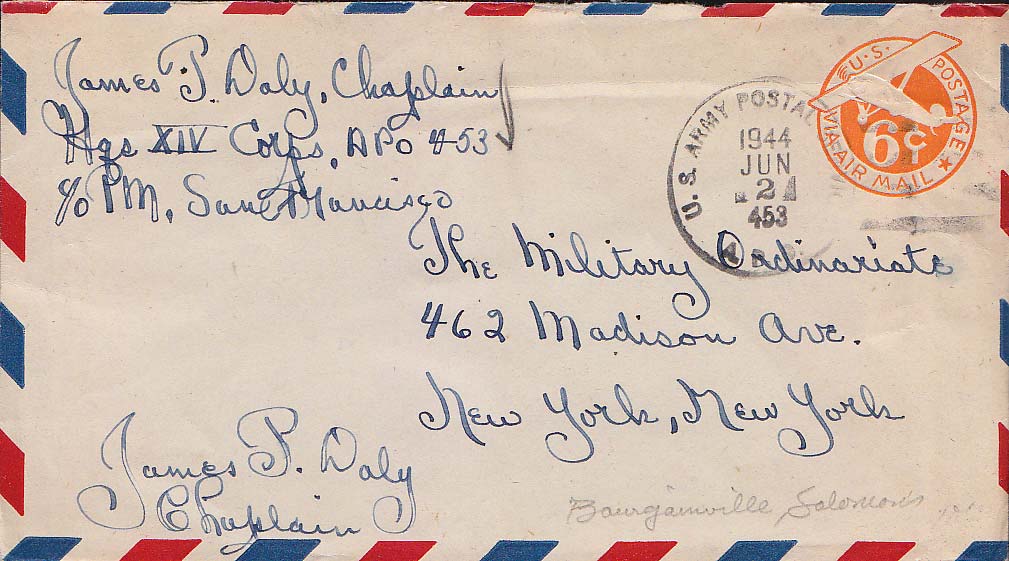 James P. Daly, Chaplain
Hqs XIV Corps, APO 453
c/o PM, San Francisco
U.S. ARMY POSTAL
1944
JUN
2
453
U.S. POSTAGE
6¢
VIA AIR MAIL
The Military Ordinariate
462 Madison Ave.
New York, New York
James P. Daly
Chaplain
Bourgainville Solomons